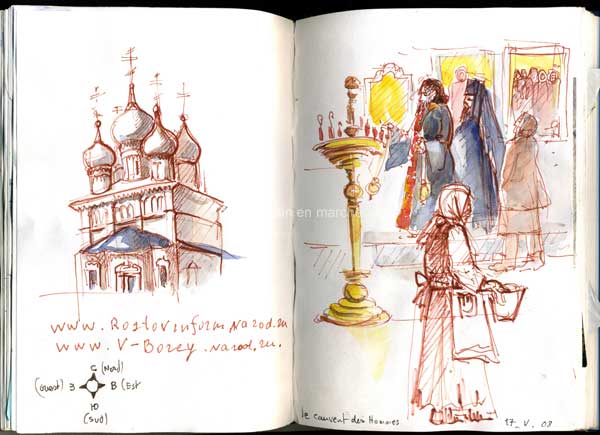 in en marche
www.Rostovinform.Narod.ru
www.V-Borey.narod.ru.
C (Nord)
(ouest) З В (Est
Ю
(sud)
le couvent des Hommes 17_V. 08